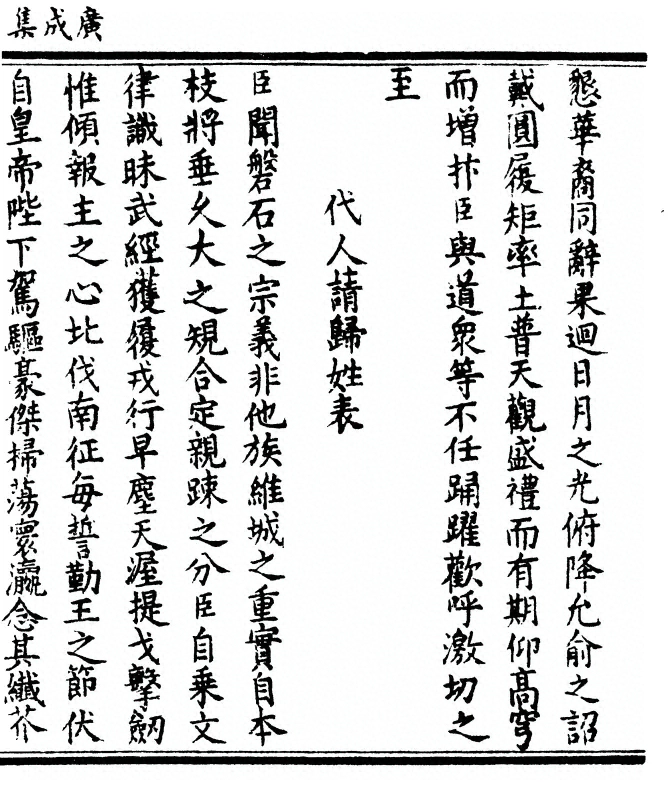 廣成集
懇華裔同辭果迴日月之光俯降允俞之詔
戴圓履矩率土普天觀盛禮而有期仰高穹
而增抃臣與道衆等不任踊躍歡呼激切之
至
代人請歸姓表
臣聞磐石之宗義非他族維城之重實自本
枝將垂久大之規合定親踈之分臣自乗文
律識昧武經獲履戎行早塵天渥提戈擊劒
惟傾報主之心北伐南征每誓勤王之節伏
自皇帝陛下駕驅豪傑掃蕩寰瀛念其纖芥